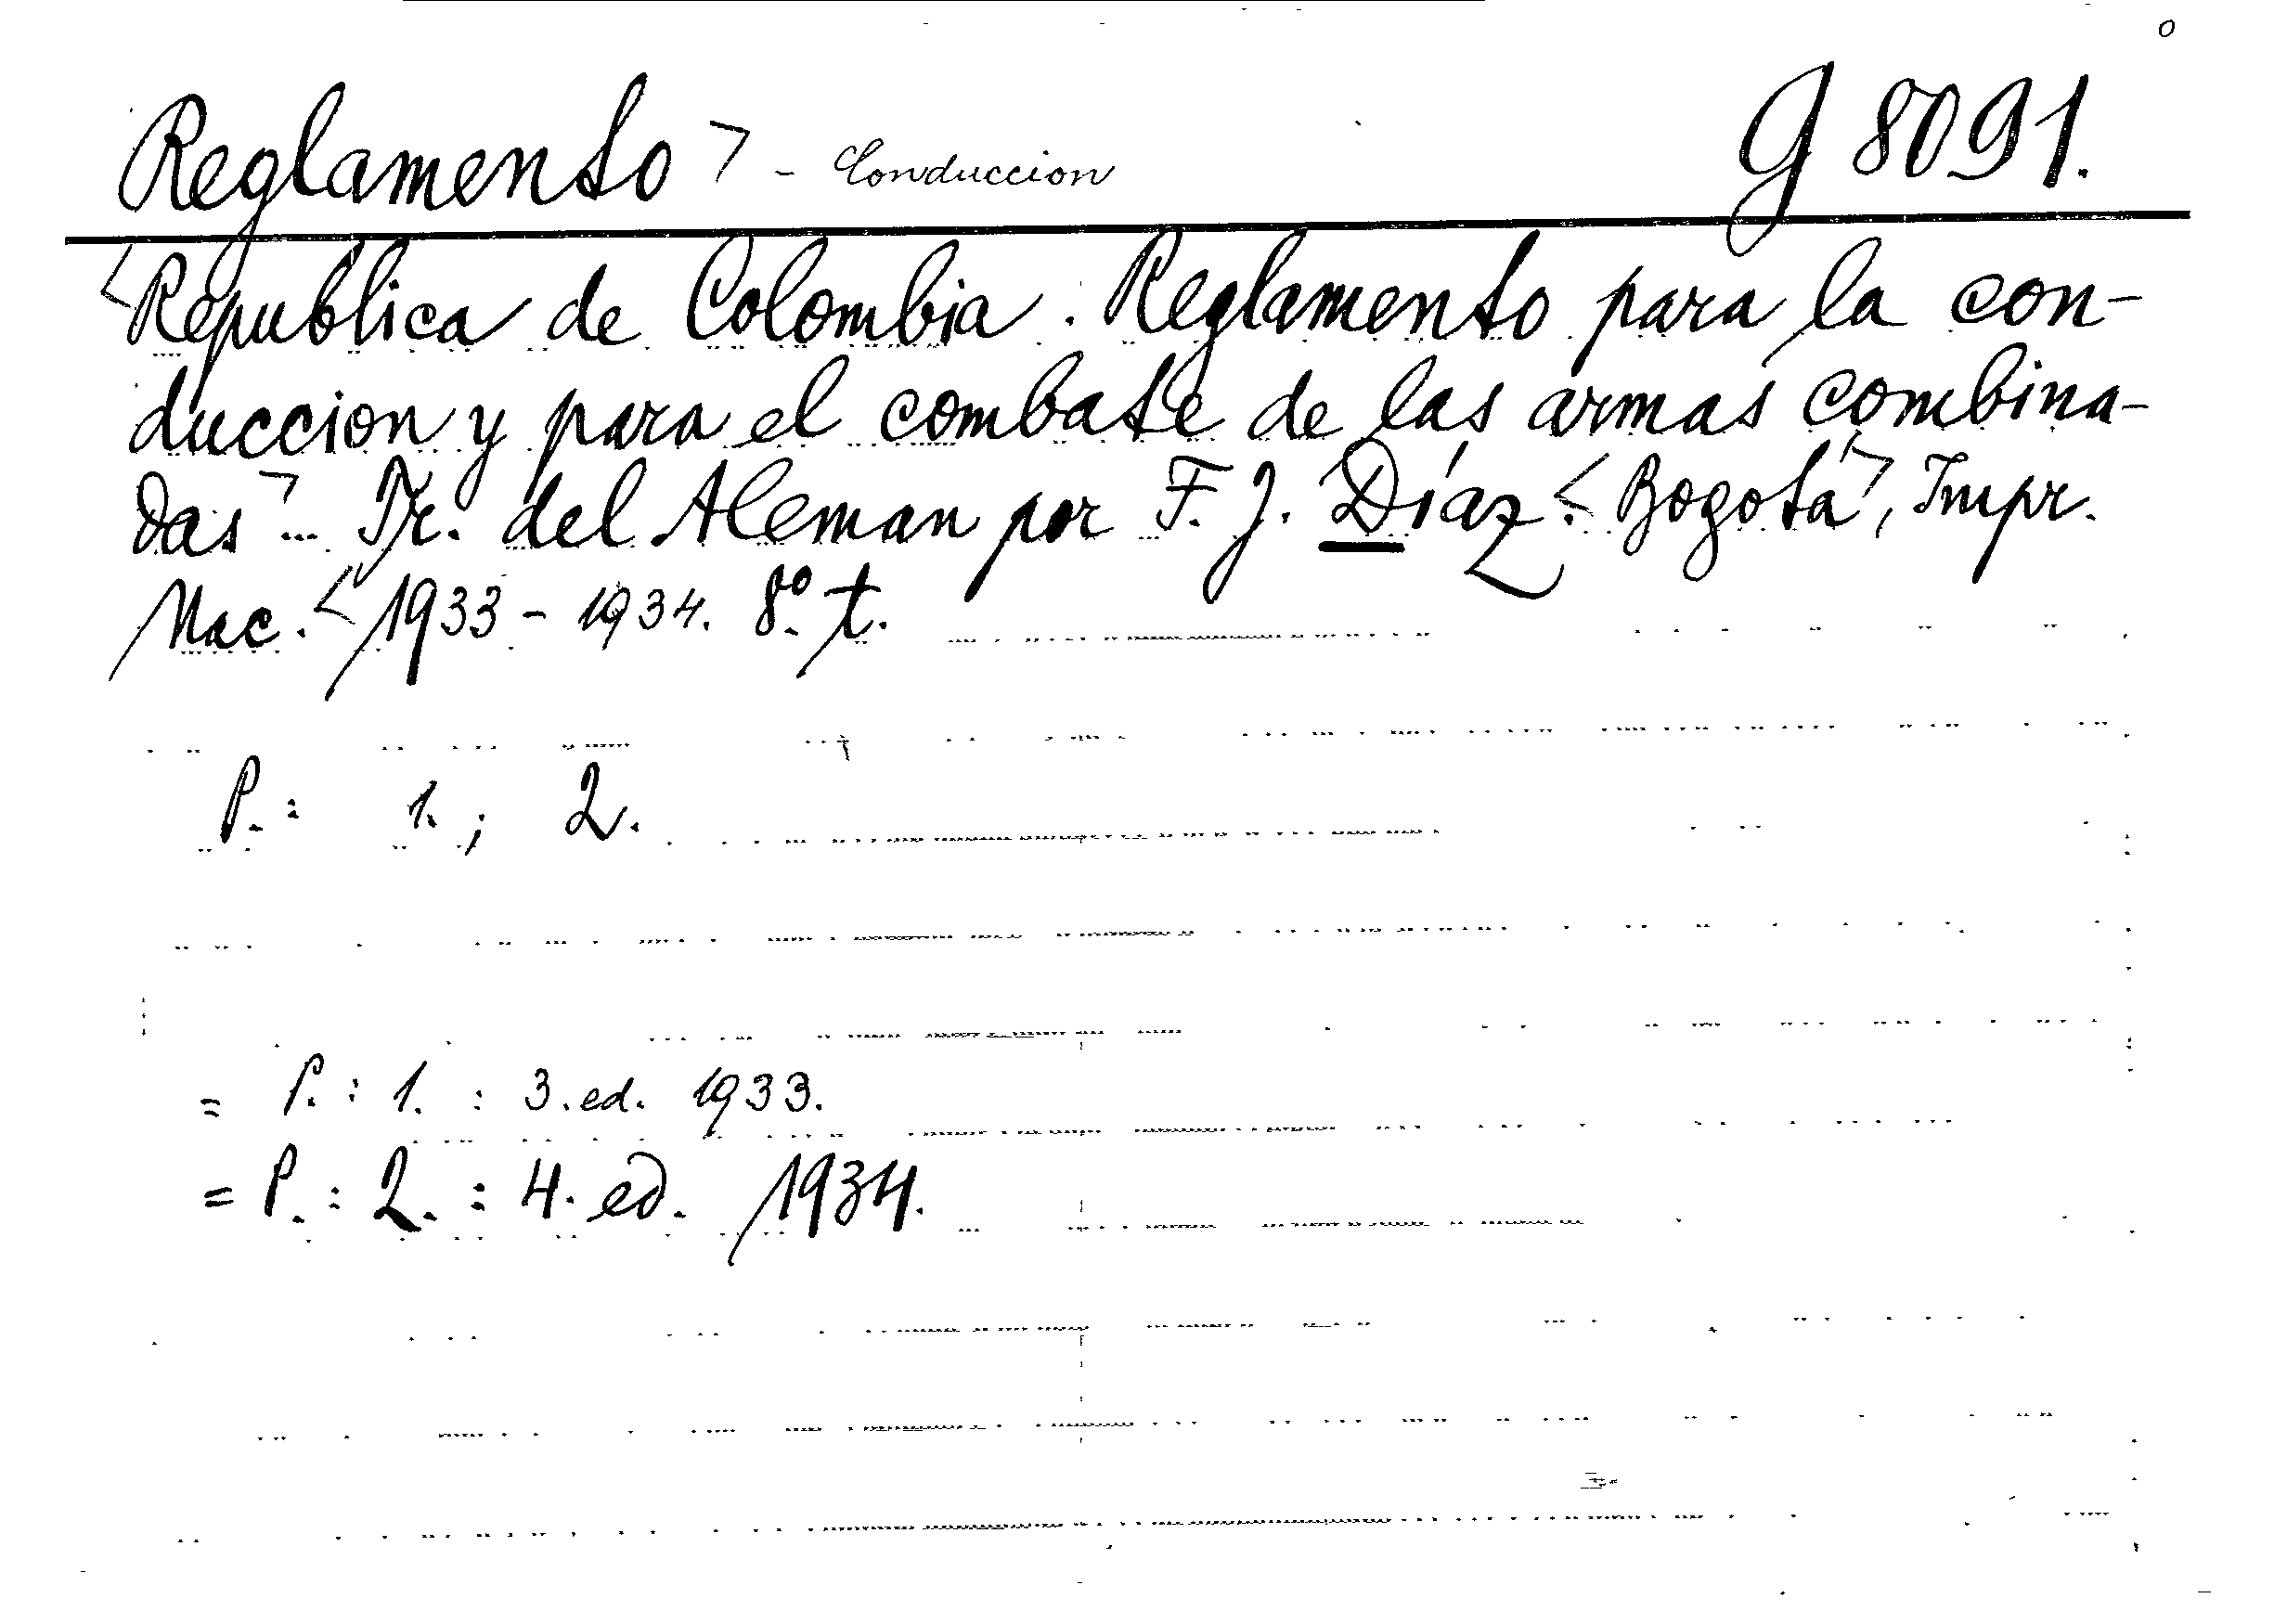 Reglamento > - Conduccion G 8091.
<Republica de Colombia. Reglamento para la con-
duccion y para el combate de las armas combina-
das> ... Tr. del Aleman por F. J. Díaz. <Bogotá>, Impr.
Nac. <1933 - 1934. 8º. t.
P.: 1.; 2.
= P.: 1. : 3. ed. 1933.
= P.: 2. : 4. ed. 1934.